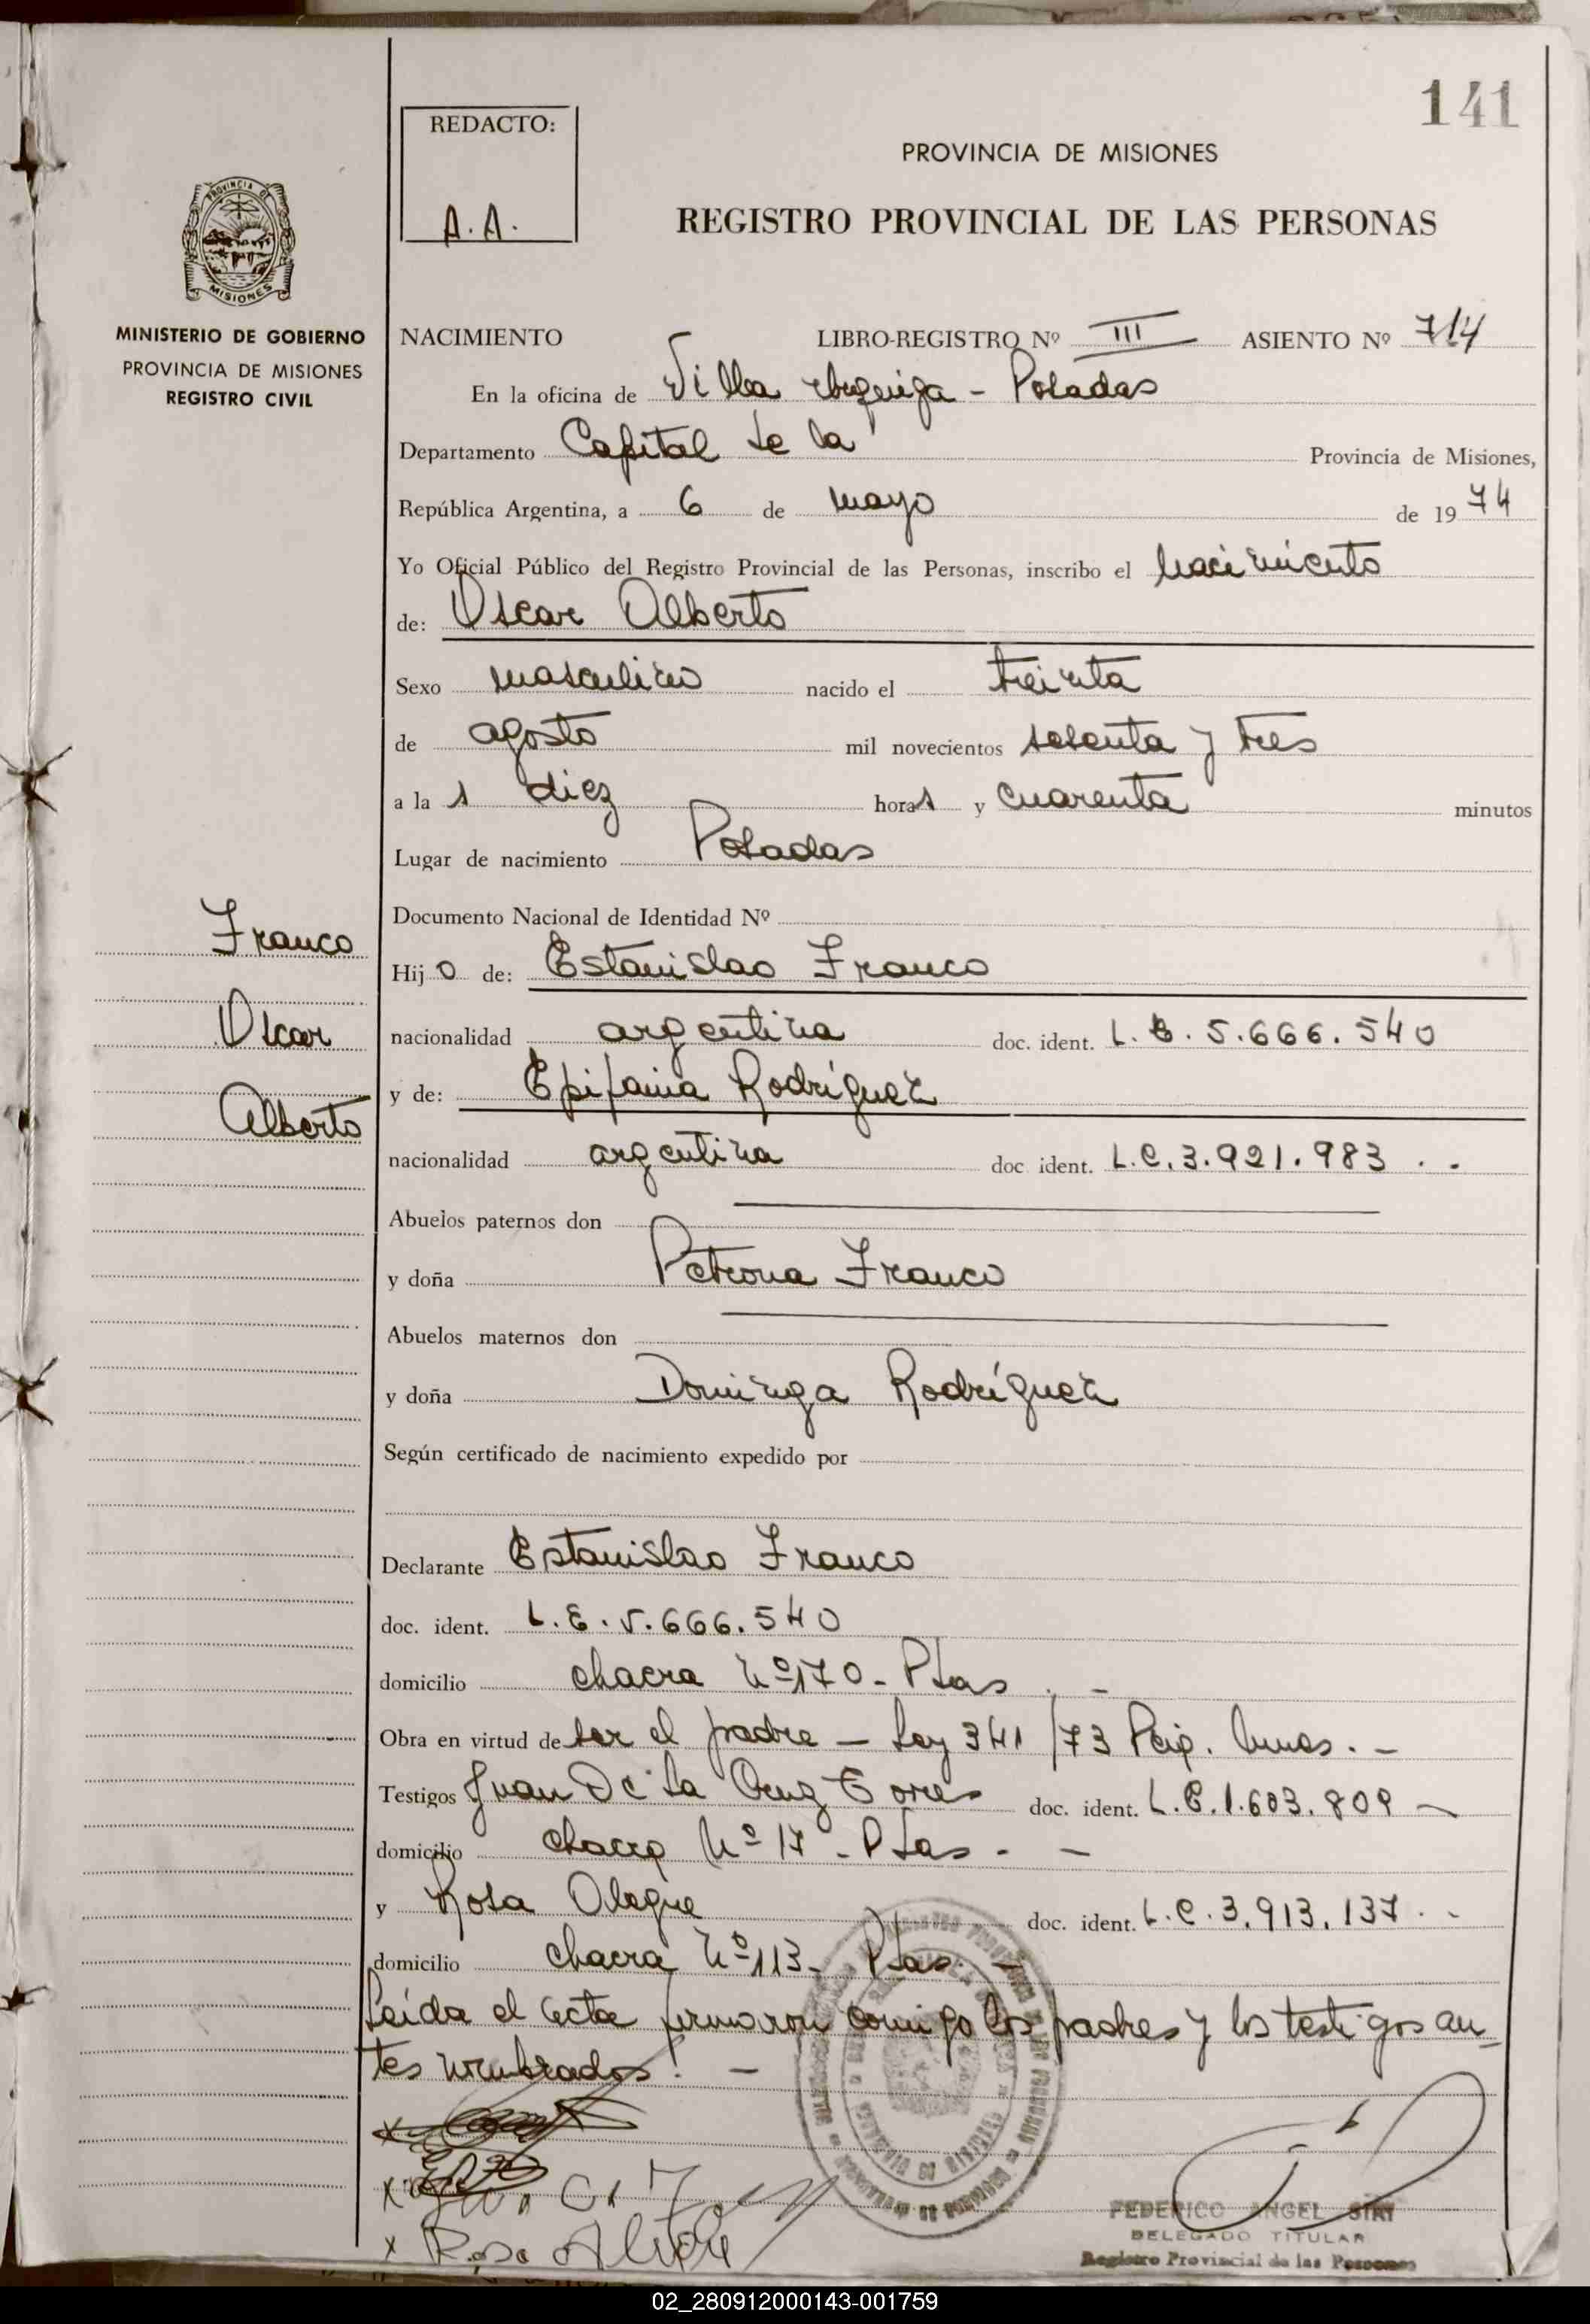 141
REDACTO:
A.A.
PROVINCIA DE MISIONES
REGISTRO PROVINCIAL DE LAS PERSONAS
PROVINCIA DE
MISIONES
MINISTERIO DE GOBIERNO
PROVINCIA DE MISIONES
REGISTRO CIVIL
NACIMIENTO LIBRO-REGISTRO Nº III ASIENTO Nº 714
En la oficina de Villa Urquiza - Posadas
Departamento Capital de la Provincia de Misiones,
República Argentina, a 6 de mayo de 1974
Yo Oficial Público del Registro Provincial de las Personas, inscribo el nacimiento
de: Oscar Alberto
Sexo masculino nacido el treinta
de agosto mil novecientos setenta y tres
a las diez horas y cuarenta minutos
Lugar de nacimiento Posadas
Documento Nacional de Identidad Nº
Franco
Oscar
Alberto
Hijo de: Estanislao Franco
nacionalidad argentina doc. ident. L.E. 5.666.540
y de: Epifania Rodríguez
nacionalidad argentina doc. ident. L.C. 3.921.983 . -
Abuelos paternos don
y doña Petrona Franco
Abuelos maternos don
y doña Dominga Rodríguez
Según certificado de nacimiento expedido por
Declarante Estanislao Franco
doc. ident. L.E. 5.666.540
domicilio chacra Nº 170 - Pdas . -
Obra en virtud de ser el padre - Ley 341/73
Testigos Juan De La Cruz Torres doc. ident. L.E. 1.603.809 -
domicilio chacra Nº 17 - Pdas - -
y Rosa Alegre doc. ident. L.C. 3.913.137 . -
domicilio chacra Nº 113 - Pdas. -
Leída el acta firmaron conmigo los padres y los testigos an-
tes nombrados. -
x
x
x Rosa
FEDERICO ANGEL SIRI
DELEGADO TITULAR
Registro Provincial de las Personas
02_280912000143-001759